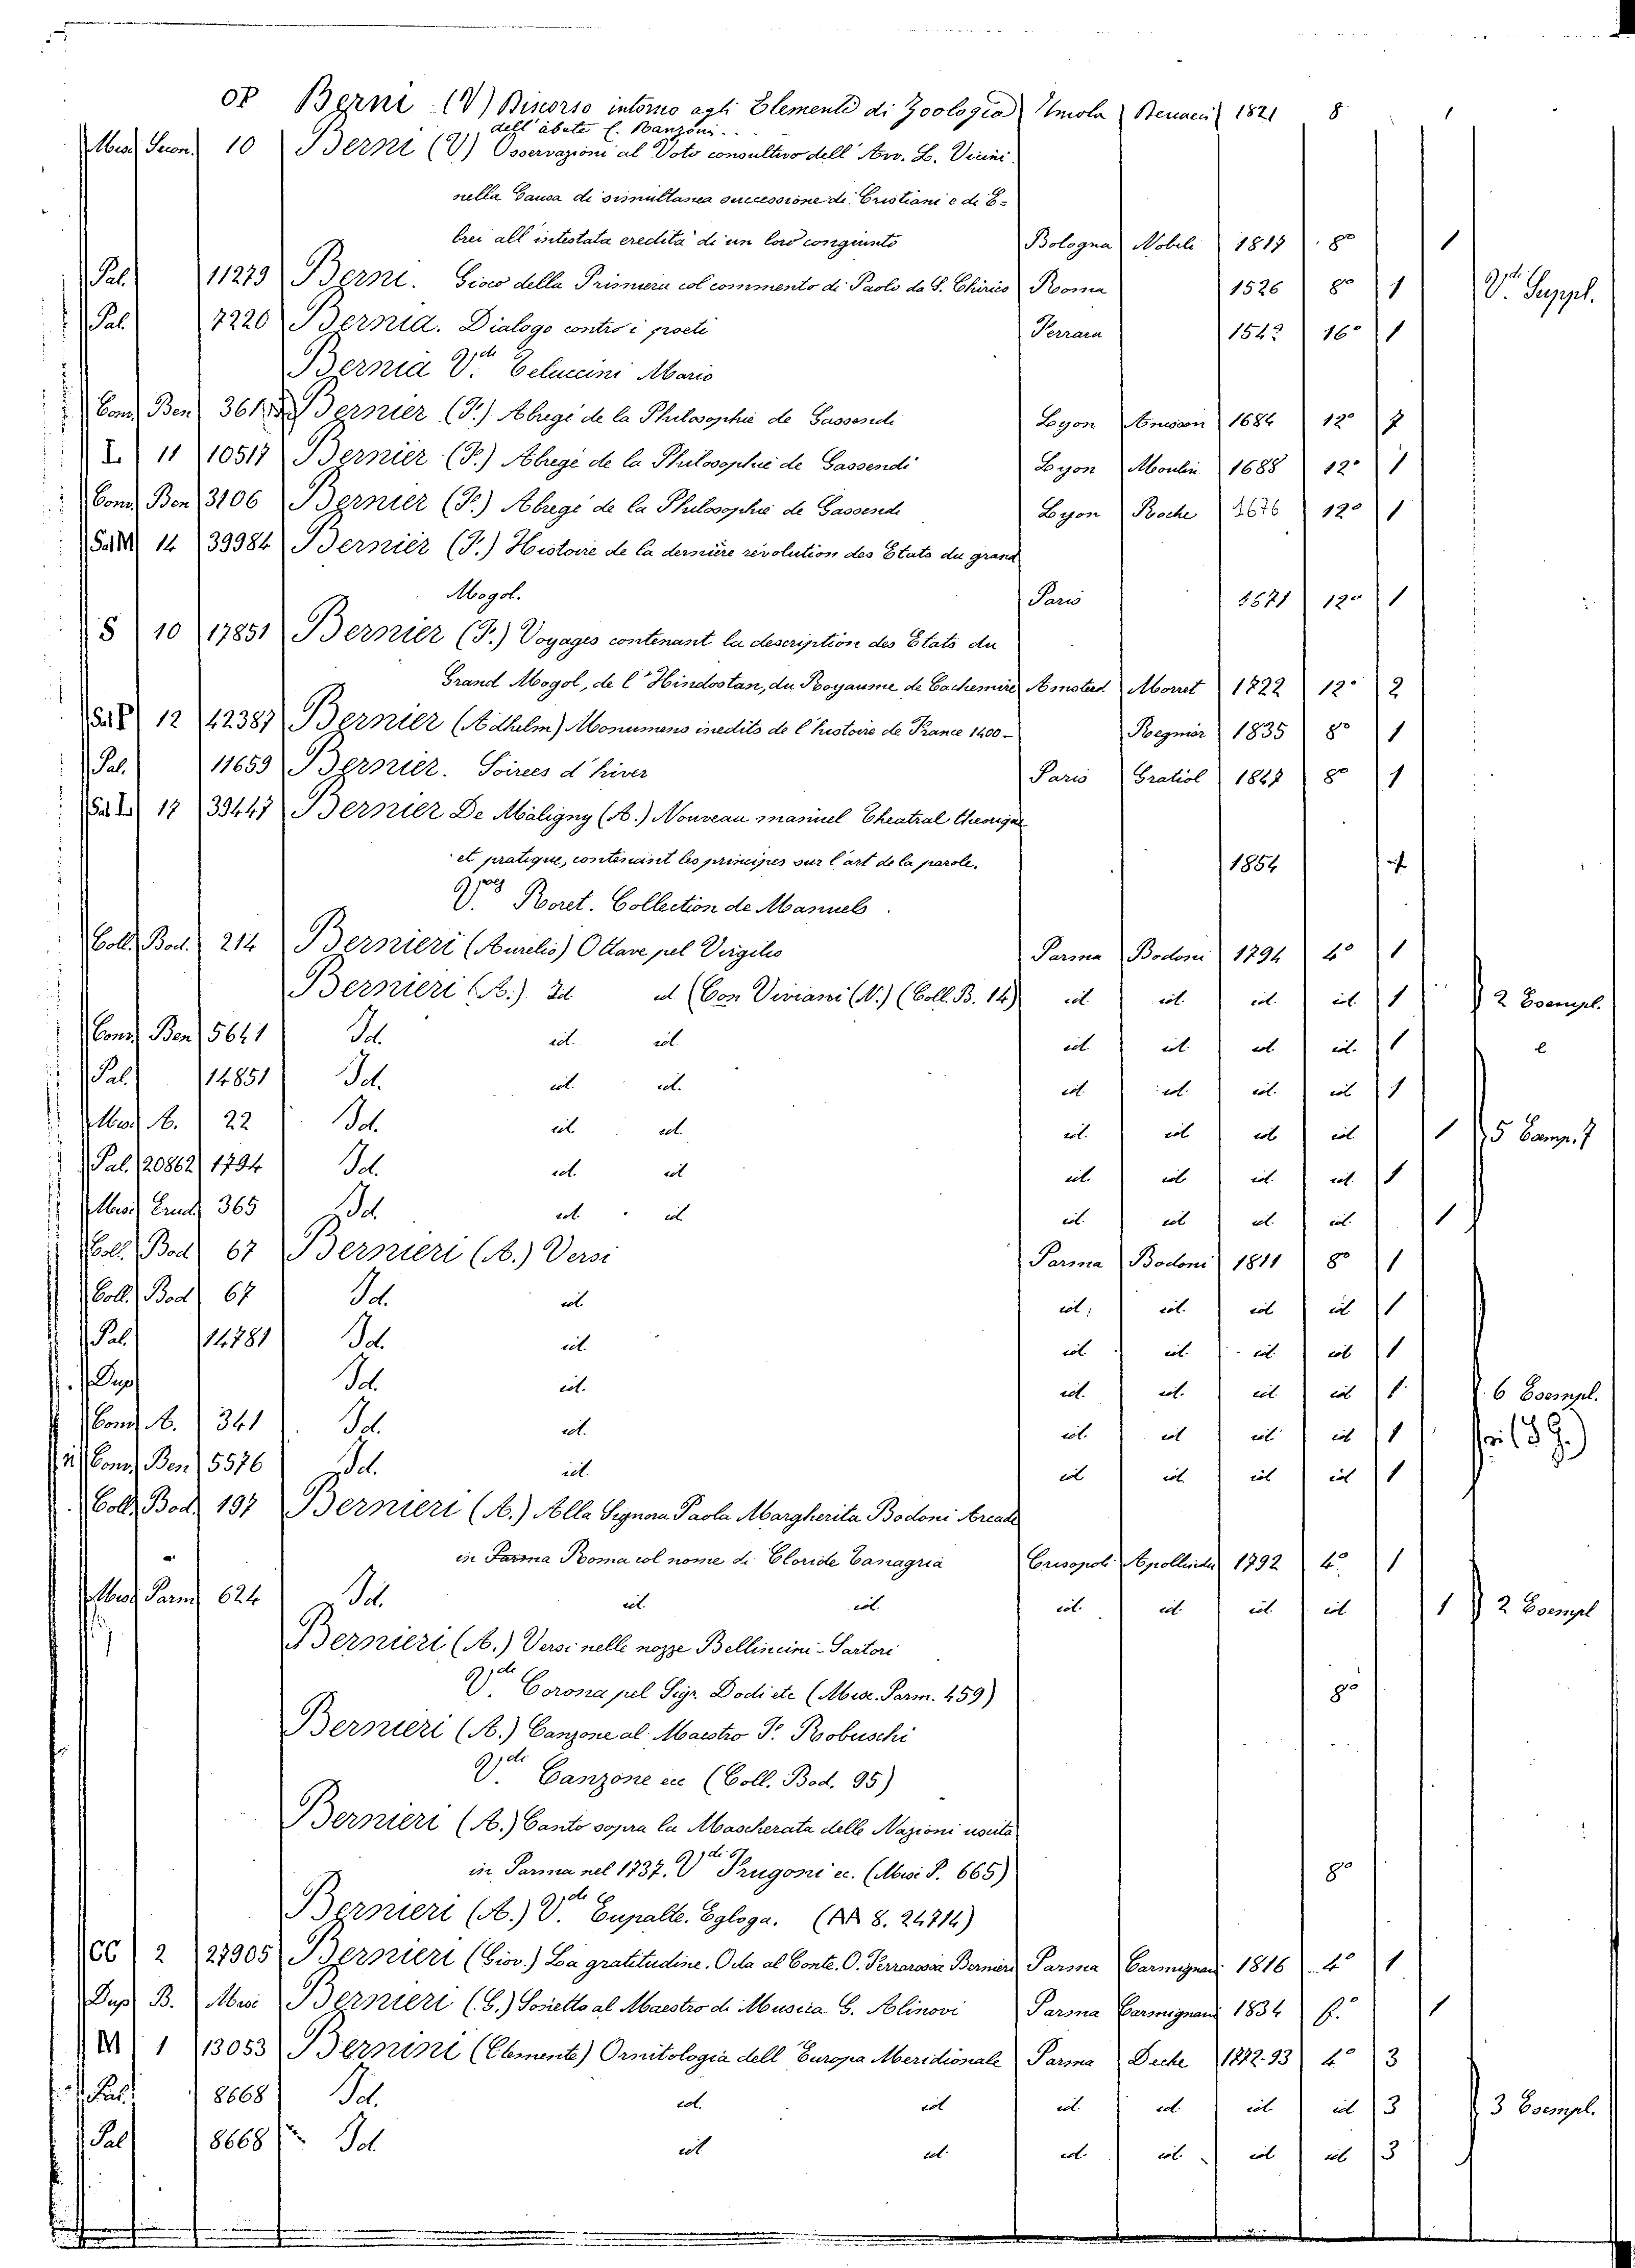 OP. Berni (V) Discorso intorno agli Elementi di Zoologia Imola Benacci 1821 8 1
dell'abate C. Ranzoni
Misc. Econ. 10 Berni (V) Osservazioni al Voto consultivo dell'Avv. L. Vicini
nella Causa di simultanea successione di Cristiani e di E=
brei all'intestata eredità di un loro congiunto Bologna Nobili 1817 8º 1
Pal. 11279 Berni. Gioco della Primiera col commento di Paolo da S. Chirico Roma 1526 8º 1 Vdi Suppl.
Pal. 7220 Bernia. Dialogo contro i poeti Ferrara 1542 16º 1
Bernia Vdi Teluccini Mario
Conv. Ben. Bernier (F.) Abregé de la Philosophie de Gassendi Lyon Anisson 1684 12º 7
L 11 10517 Bernier (F.) Abregé de la Philosophie de Gassendi Lyon Moulin 1688 12º 1
Conv. Ben. 3106 Bernier (F.) Abregé de la Philosophie de Gassendi Lyon Roche 1676 12º 1
Sal. M 14 39984 Bernier (F.) Histoire de la dernière révolution des Etats du grand
Mogol. Paris 1671 12º 1
S 10 17851 Bernier (F.) Voyages contenant la description des Etats du
Grand Mogol, de l'Hindostan, du Royaume de Cachemire Amsterd. Morret 1722 12º 2
Sal. P 12 42387 Bernier (Adhelm) Monumens inedits de l'histoire de France 1400- Regnier 1835 8º 1
Pal. 11659 Bernier. Soirees d'hiver Paris Gratiol 1847 8º 1
Sal. L 17 39447 Bernier De Maligny (A.) Nouveau manuel Theatral theorique
et pratique, contenant les principes sur l'art de la parole. 1854 1
V. Roret. Collection de Manuels.
Coll. Bod. 214 Bernieri (Aurelio) Ottave pel Virgilio Parma Bodoni 1794 4º 1
Bernieri (A.) Id id (Con Viviani (N.) (Coll. B. 14) id. id. id. id. 1 2 Esempl.
Conv. Ben. 5641 Id. id. id. id. id. id. id. 1 e
Pal. 14851 Id. id. id. id. id. id. id 1
Misc. A. 22 Id. id. id. id. id id id. 1 5 Comp.
Pal. 20862 1794 Id. id. id id. id id. id. 1
Misc. Erud. 365 Id. id. id. id. id id. id. 1
Coll. Bod. 67 Bernieri (A.) Versi Parma Bodoni 1811 8º 1
Coll. Bod. 67 Id. id. id. id. id id 1
Pal. 14781 Id. id. id id. id. id 1
Dup. Id. id. id. id. id. id 1 6 Esempl.
Conv. A. 341 Id. id. id. id id id 1
Conv. Ben. 5576 Id. id. id id. id id 1
Coll. Bod. 197 Bernieri (A.) Alla Signora Paola Margherita Bodoni Arcade
in Parma Roma col nome di Cloride Tanagria Crisopoli Apollinda 1792 4º 1
Misc. Parm. 624 Id. id. id. id. id. id. id. 1 2 Esempl
Bernieri (A.) Versi nelle nozze Bellincini-Sartori
Vdi Corona pel Sigr. Dodi etc (Misc. Parm. 459) 8º
Bernieri (A.) Canzone al Maestro F. Robuschi
Vdi Canzone ecc (Coll. Bod. 95)
Bernieri (A.) Canto sopra la Mascherata delle Nazioni uscita
in Parma nel 1737. Vdi Frugoni ec. (Misc. P. 665) 8º
Bernieri (A.) Vdi Eupalte. Egloga. (AA 8. 24714)
CC 2 27905 Bernieri (Giov.) La gratitudine. Oda al Conte. O. Ferrarosia Bernieri Parma Carmignani 1816 4º 1
Dup. B. Misc Bernieri (G.) Sonetto al Maestro di Musica G. Alinovi Parma Carmignani 1834 f. 1
M 1 13053 Bernini (Clemente) Ornitologia dell'Europa Meridionale Parma Deche 1772-93 4º 3
Pal. 8668 Id. id. id id. id. id. id 3 3 Esempl.
Pal 8668 Id. id id. id. id. id id 3